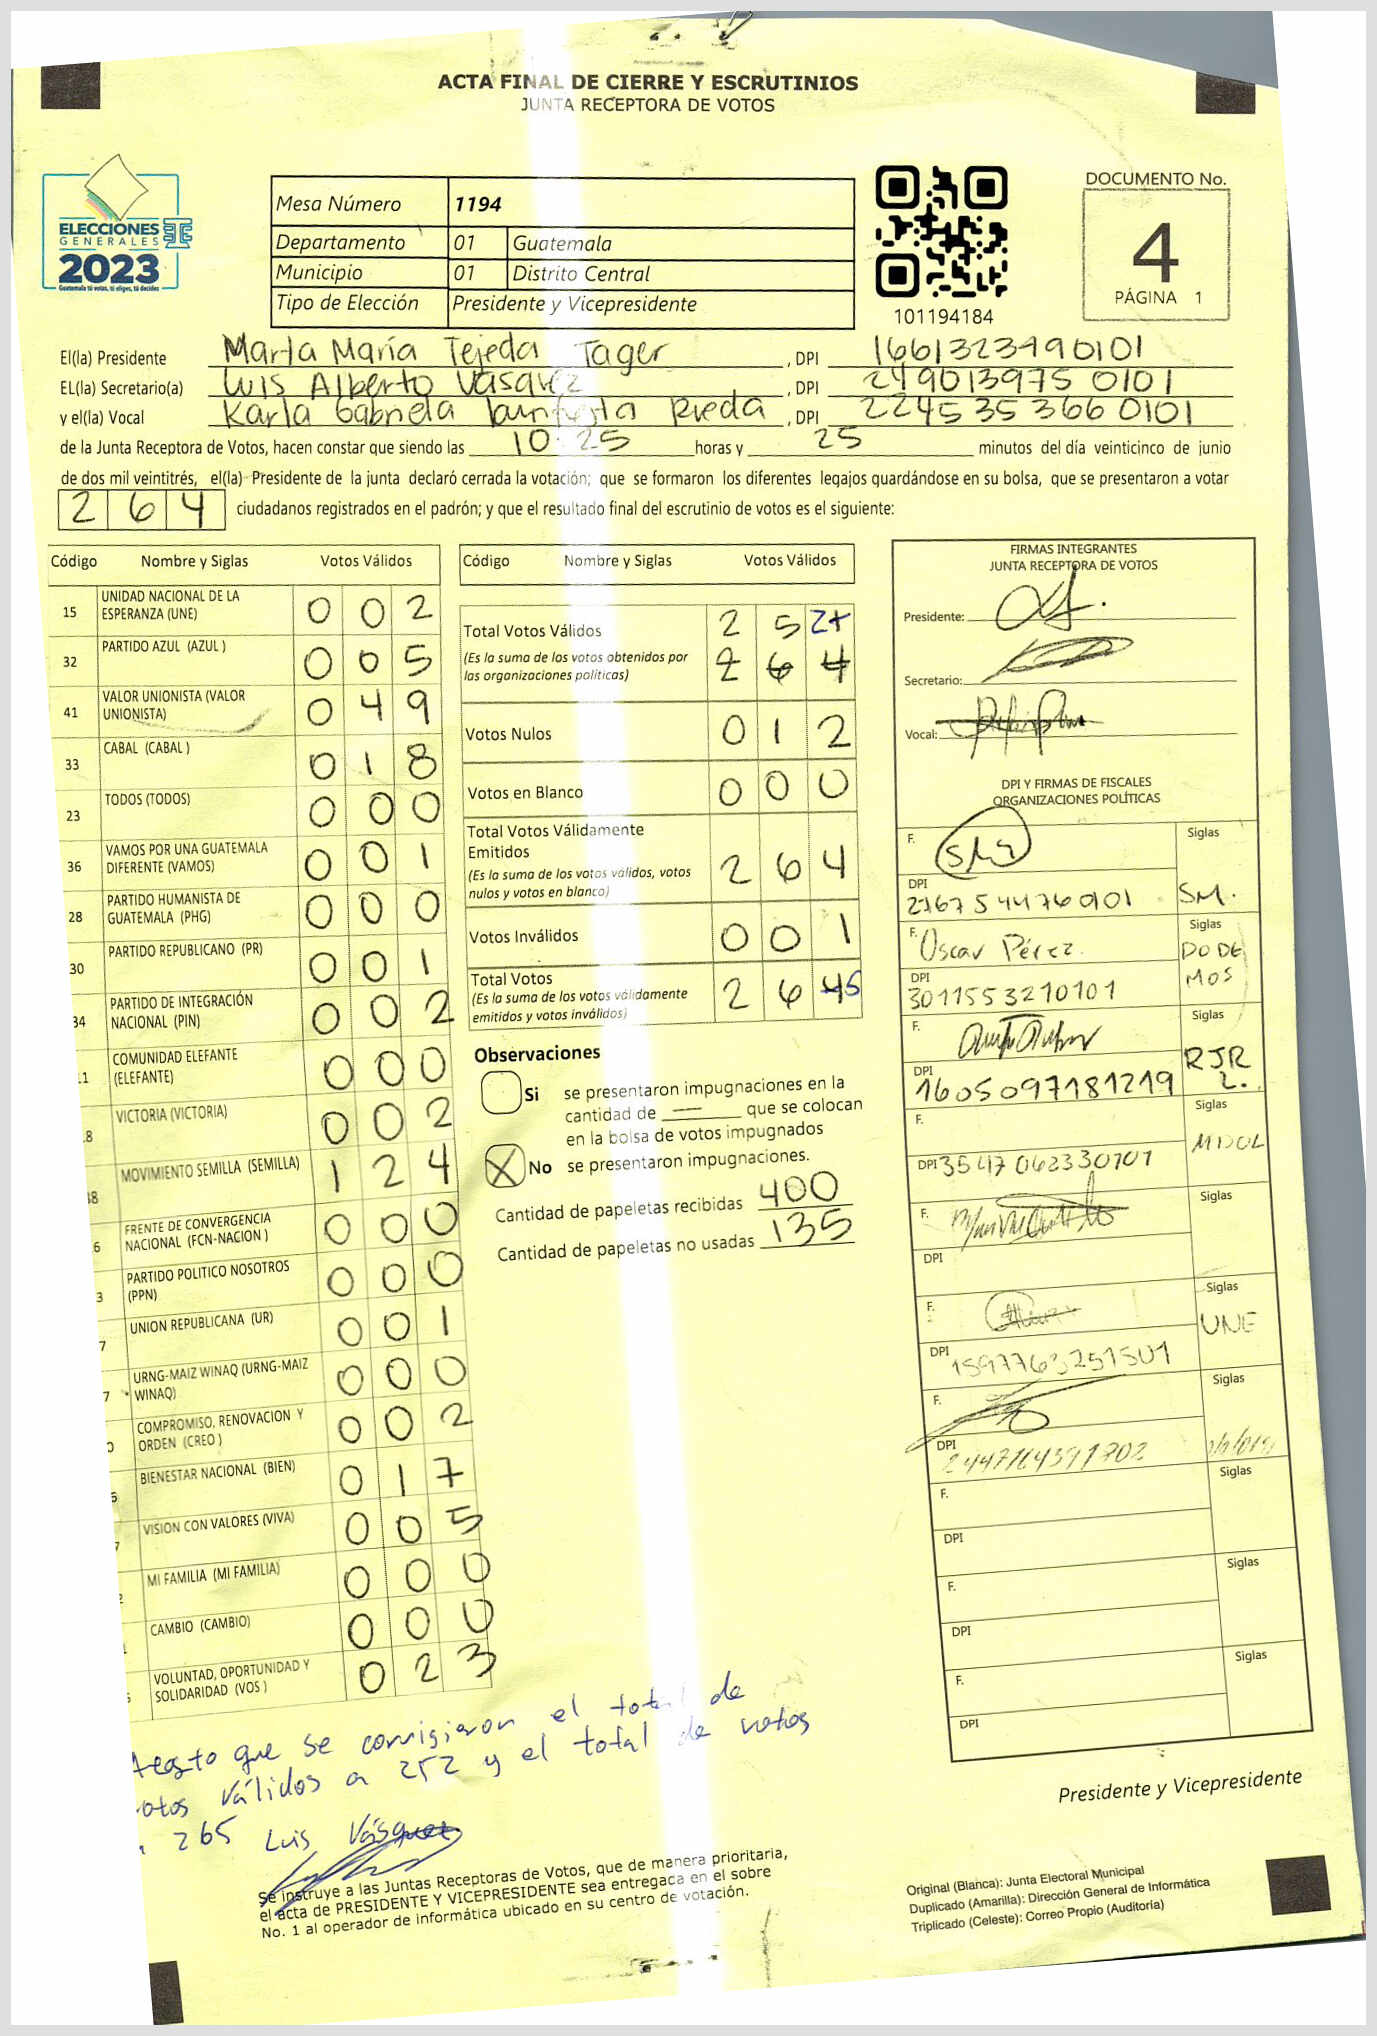 ACTA FINAL DE CIERRE Y ESCRUTINIOS
JUNTA RECEPTORA DE VOTOS
ELECCIONES
GENERALES
2023
Guatemala tú votas, tú eliges, tú decides
Mesa Número 1194
Departamento 01 Guatemala
Municipio 01 Distrito Central
Tipo de Elección Presidente y Vicepresidente
101194184
DOCUMENTO No.
4
PÁGINA 1
El(la) Presidente Marta María Tejeda Tager , DPI 1661323490101
EL(la) Secretario(a) Luis Alberto Vásquez , DPI 2490139750101
y el(la) Vocal Karla Gabriela Rueda , DPI 2245353660101
de la Junta Receptora de Votos, hacen constar que siendo las 10:25 horas y 25 minutos del día veinticinco de junio
de dos mil veintitrés, el(la) Presidente de la junta declaró cerrada la votación; que se formaron los diferentes legajos guardándose en su bolsa, que se presentaron a votar
264 ciudadanos registrados en el padrón; y que el resultado final del escrutinio de votos es el siguiente:
Código Nombre y Siglas Votos Válidos
15 UNIDAD NACIONAL DE LA ESPERANZA (UNE) 0 0 2
32 PARTIDO AZUL (AZUL ) 0 0 5
41 VALOR UNIONISTA (VALOR UNIONISTA) 0 4 9
33 CABAL (CABAL ) 0 1 8
23 TODOS (TODOS) 0 0 0
36 VAMOS POR UNA GUATEMALA DIFERENTE (VAMOS) 0 0 1
28 PARTIDO HUMANISTA DE GUATEMALA (PHG) 0 0 0
30 PARTIDO REPUBLICANO (PR) 0 0 1
34 PARTIDO DE INTEGRACIÓN NACIONAL (PIN) 0 0 2
1 COMUNIDAD ELEFANTE (ELEFANTE) 0 0 0
8 VICTORIA (VICTORIA) 0 0 2
8 MOVIMIENTO SEMILLA (SEMILLA) 1 2 4
6 FRENTE DE CONVERGENCIA NACIONAL (FCN-NACION ) 0 0 0
3 PARTIDO POLITICO NOSOTROS (PPN) 0 0 0
7 UNION REPUBLICANA (UR) 0 0 1
7 URNG-MAIZ WINAQ (URNG-MAIZ WINAQ) 0 0 0
0 COMPROMISO, RENOVACION Y ORDEN (CREO ) 0 0 2
BIENESTAR NACIONAL (BIEN) 0 1 7
VISION CON VALORES (VIVA) 0 0 5
MI FAMILIA (MI FAMILIA) 0 0 0
CAMBIO (CAMBIO) 0 0 0
VOLUNTAD, OPORTUNIDAD Y SOLIDARIDAD (VOS ) 0 2 3
Código Nombre y Siglas Votos Válidos
Total Votos Válidos 2 5 2
(Es la suma de los votos obtenidos por las organizaciones políticas) 2 6 4
Votos Nulos 0 1 2
Votos en Blanco 0 0 0
Total Votos Válidamente Emitidos
(Es la suma de los votos válidos, votos nulos y votos en blanco) 2 6 4
Votos Inválidos 0 0 1
Total Votos
(Es la suma de los votos válidamente emitidos y votos inválidos) 2 6 4 5
Observaciones
Si se presentaron impugnaciones en la
cantidad de — que se colocan
en la bolsa de votos impugnados
X No se presentaron impugnaciones.
Cantidad de papeletas recibidas 400
Cantidad de papeletas no usadas 135
FIRMAS INTEGRANTES
JUNTA RECEPTORA DE VOTOS
Presidente:
Secretario:
Vocal:
DPI Y FIRMAS DE FISCALES
ORGANIZACIONES POLÍTICAS
F. Siglas
DPI 2767544760901 SM.
F. Oscar Pérez. Siglas
DPI 3011553210101 PODEMOS
F. Siglas
DPI 1605097181219 RJR
F. Siglas
DPI 3547062330101
F. Siglas
DPI
F. Siglas
DPI 1597763251501 UNE
F. Siglas
DPI
F. Siglas
DPI
F. Siglas
DPI
F. Siglas
DPI
que se corrigieron el total de
votos válidos a 252 y el total de votos
265 Luis Vásquez
Presidente y Vicepresidente
Se instruye a las Juntas Receptoras de Votos, que de manera prioritaria,
el acta de PRESIDENTE Y VICEPRESIDENTE sea entregada en el sobre
No. 1 al operador de informática ubicado en su centro de votación.
Original (Blanca): Junta Electoral Municipal
Duplicado (Amarilla): Dirección General de Informática
Triplicado (Celeste): Correo Propio (Auditoría)